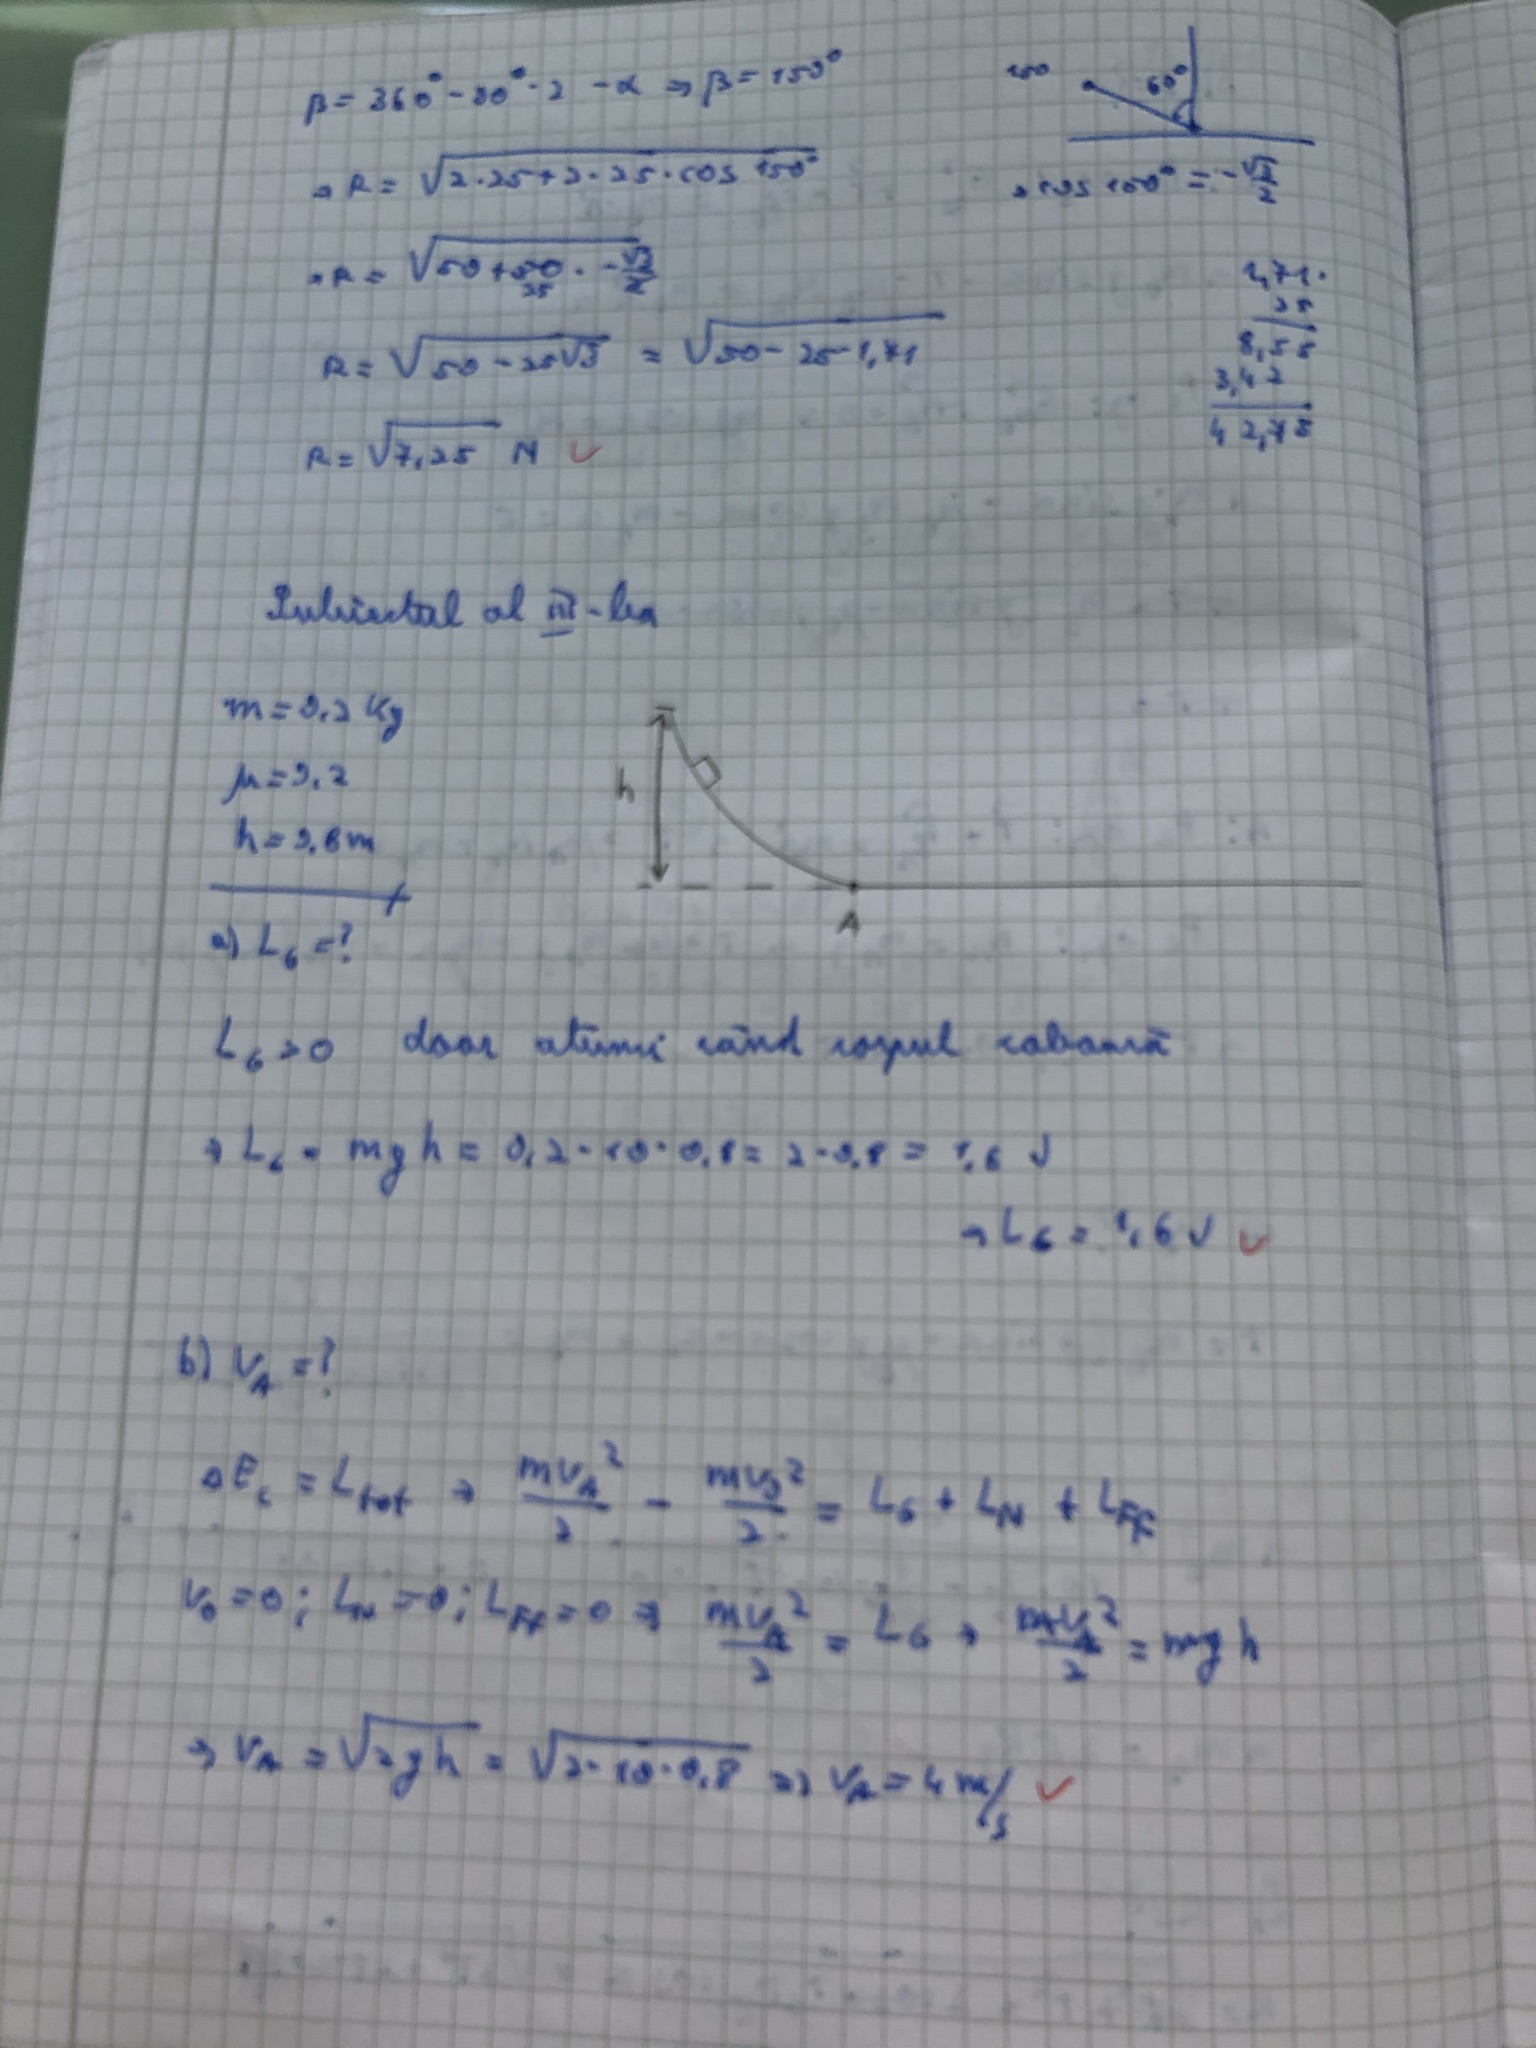 β = 360° - 90° · 2 - α ⇒ β = 150°
150
60°
⇒ R = √(2·25 + 2·25·cos 150°)
⇒ cos 150° = -√3/2
⇒ R = √(50 + 50 · -√3/2)
25
R = √(50 - 25√3) = √(50 - 25·1,71
1,71·
25
8,55
3,42
42,75
R = √7,25 N ✓
Subiectul al III-lea
m = 0,2 kg
μ = 0,2
h = 0,8 m
h
A
a) L_G = ?
L_G > 0 doar atunci când corpul coboară
⇒ L_G = mgh = 0,2 · 10 · 0,8 = 2 · 0,8 = 1,6 J
⇒ L_G = 1,6 J ✓
b) v_A = ?
ΔE_c = L_tot ⇒ mv_A²/2 - mv_0²/2 = L_G + L_N + L_Ff
v_0 = 0; L_N = 0; L_Ff = 0 ⇒ mv_A²/2 = L_G ⇒ mv_A²/2 = mgh
⇒ v_A = √2gh = √2·10·0,8 ⇒ v_A = 4 m/s ✓